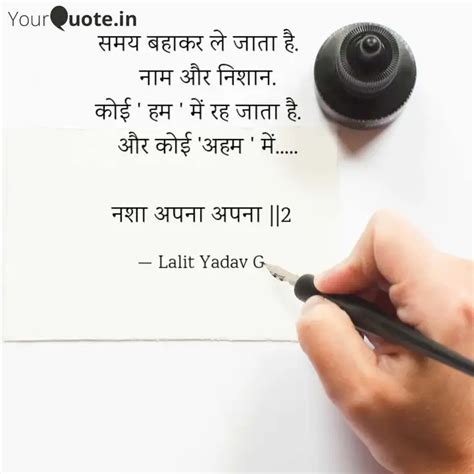 YourQuote.in
समय बहाकर ले जाता है.
नाम और निशान.
कोई ' हम ' में रह जाता है.
और कोई 'अहम ' में.....
नशा अपना अपना ||2
— Lalit Yadav G